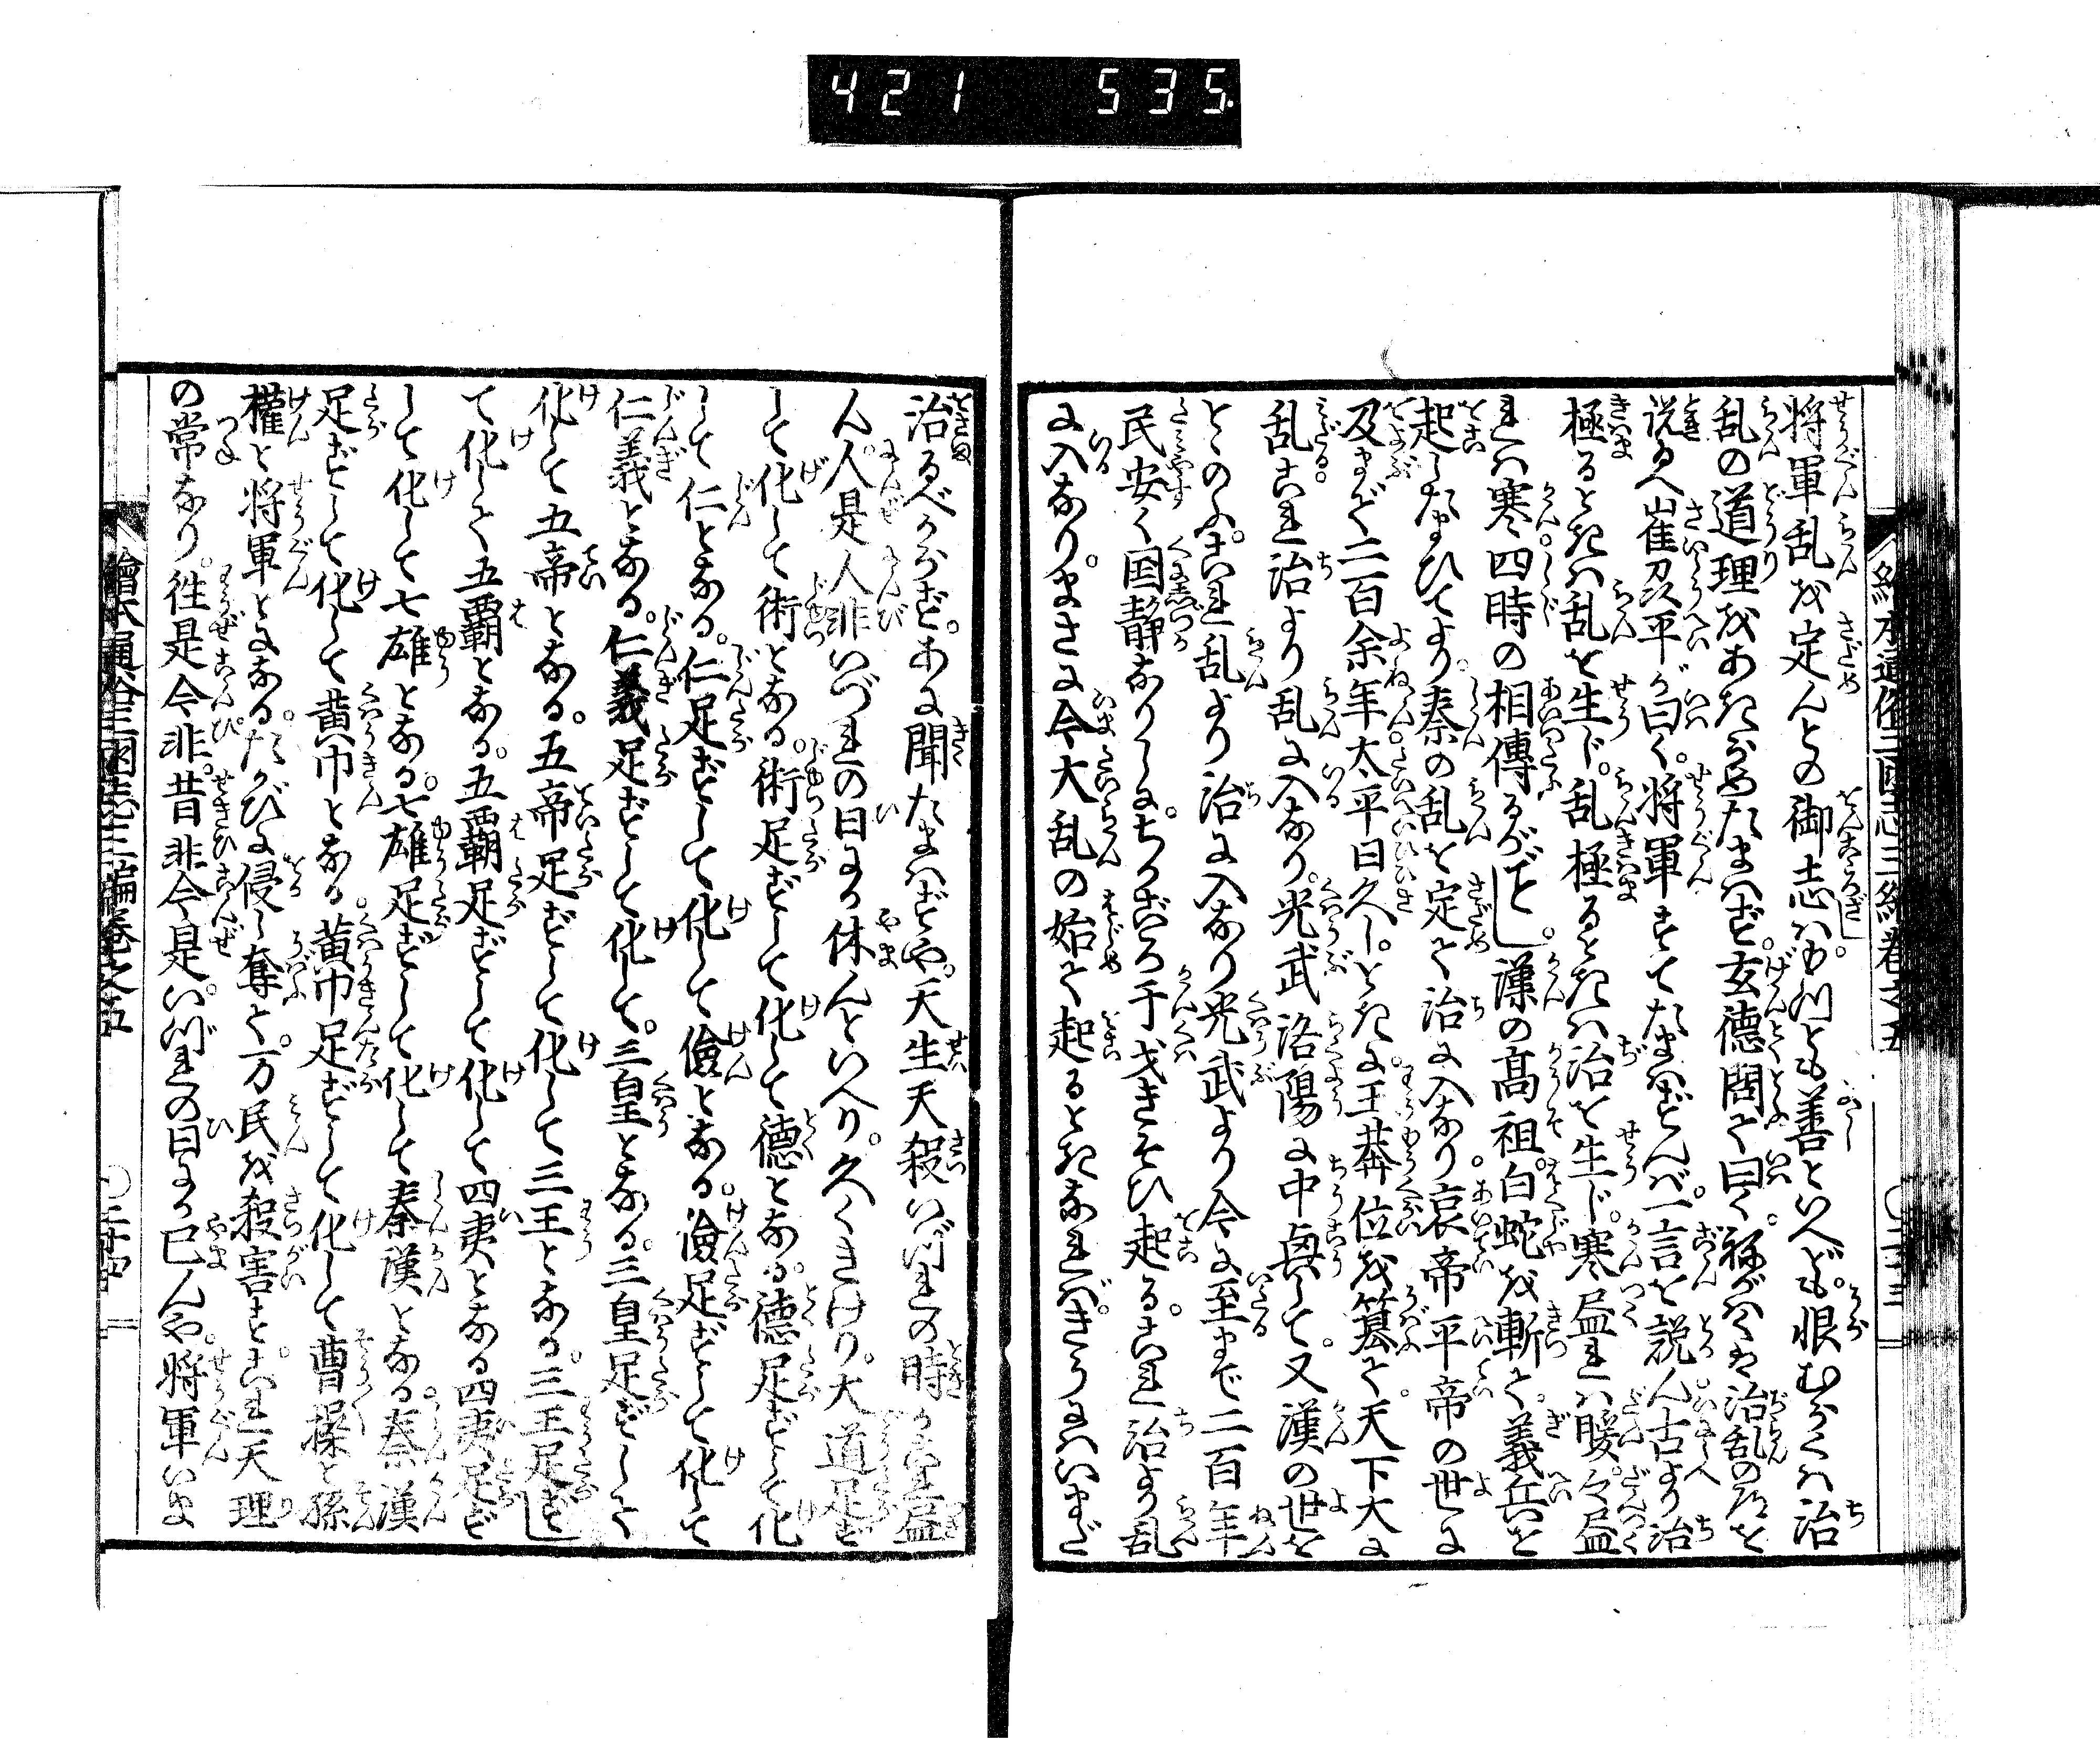 421 535
繪本通俗三國志三編巻之五 〇二十三
将軍乱を定んとの御志はもつとも善といへども。恨むらくは治
乱の道理をあきらめたまはず。玄徳問て曰く。ねがはくは治乱の道を
説たまへ崔州平が曰く。将軍すてたまはずんば。一言を説ん。古より治
極るときは乱を生じ。乱極るときは治を生ず。寒尽れば暖。々尽
れば寒。四時の相傳るがごとし。漢の高祖。白蛇を斬て。義兵を
起したまひてより。秦の乱を定て治に入なり。哀帝平帝の世に
及まで二百余年太平日久し。ときに。王莽位を簒て。天下大に
乱る。これ治より乱に入なり。光武洛陽に中興して。又漢の世を
とゝのふ。これ乱より治に入なり光武より今に至まで二百年
民安く国静なりしに。ちかごろ干戈きそひ起る。これ治より乱
に入なり。まさに今大乱の始て起るときなれば。きうにはいまだ
治るべからず。あに聞たまはずや。天生天殺いづれの時か是尽
ん。人是人非いづれの日にか休んといへり。久くきけり。大道足ず
して化して術となる。術足ずして化して徳となる。徳足ずして化
して仁となる。仁足ずして化して儉となる。儉足ずして化して
仁義となる。仁義足ずして化して。三皇となる。三皇足ずして
化して五帝となる。五帝足ずして化して三王となる。三王足ずし
て化して五覇となる。五覇足ずして化して四夷となる四夷足ず
して化して七雄となる。七雄足ずして化して秦漢となる。秦漢
足ずして化して黄巾となる。黄巾足ずして化して曹操と孫
權と将軍とになる。たがひに侵し奪て。万民を殺害す。これ天理
の常なり。徃是今非。昔非今是。いづれの日にか已んや。将軍いま
繪本通俗三國志三編巻之五 〇二十四